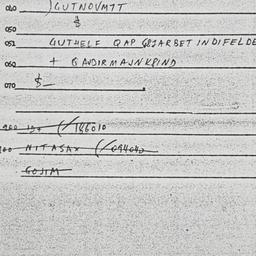 040 )GUTNOVMTT
$
050
052 GUTHELF QAP GOJARBET INDIFELDE
060 + GAVDIRMAJNKPIND
070 $
900 130 (/146010
100 NITASAX (/094040
GOJIM